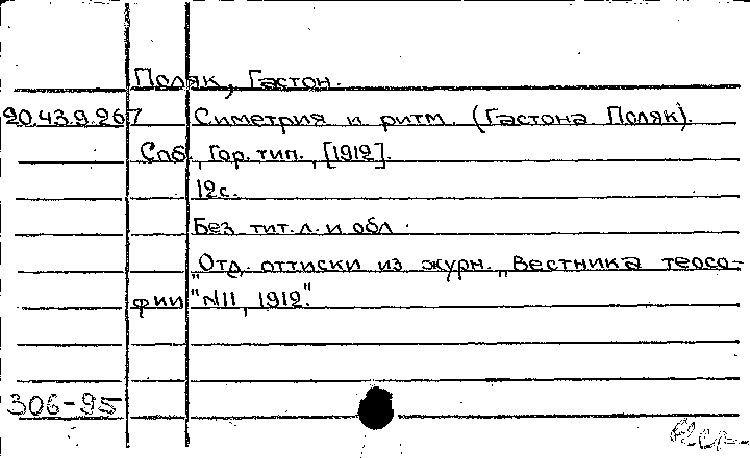 Поляк, Гастон.
20.43.9.267 Симетрия и ритм. (Гастона Поляк).
Спб., Гор. тип., [1912].
12 с.
Без тит. л. и обл.
"Отд. оттиски из журн. "Вестника теосо-
фии" №11, 1912".
306-95